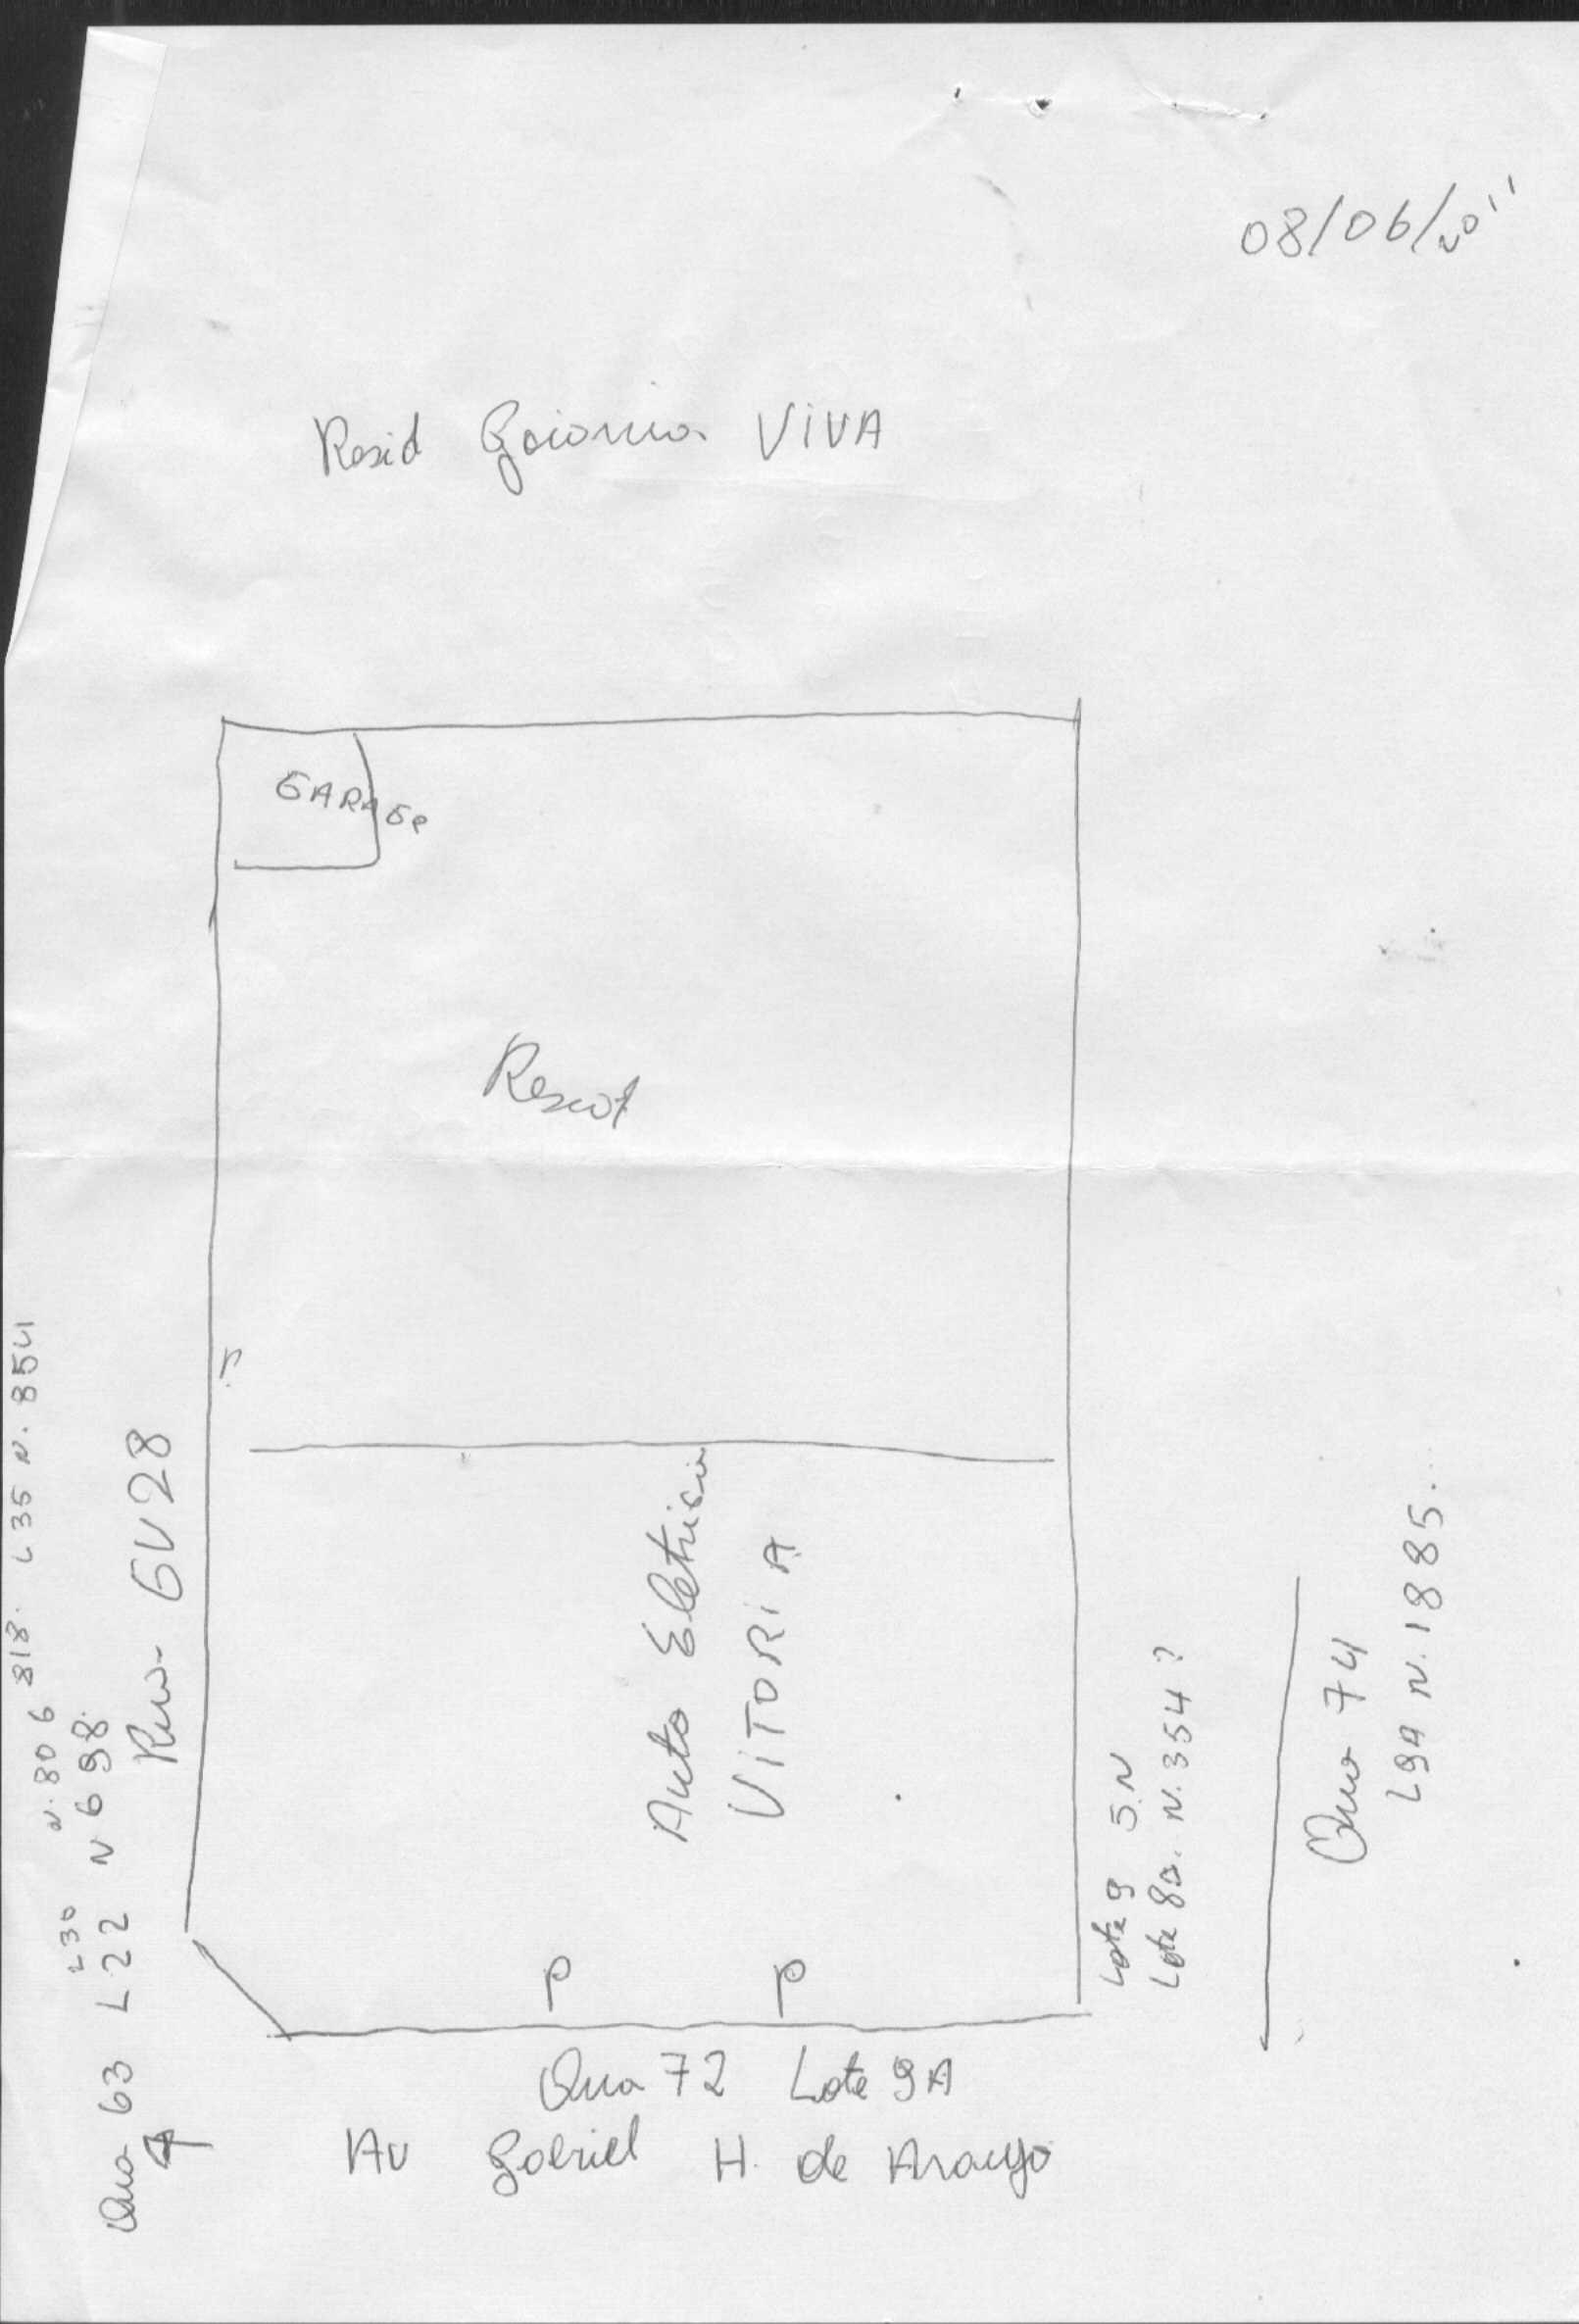 08/06/2011
Resid Goiania VIVA
GARAGe
Resid
P
Auto Eletrica
VITORIA
P P
Qua 72 Lote 9A
Av Gabriel H. de Araujo
Rua GV28
Qua 63 L22 N 698.
L30 N. 806
818. L35 N. 854
Lote 9 S.N
Lote 8a. N. 354?
Qua 74
L9A N. 1885.